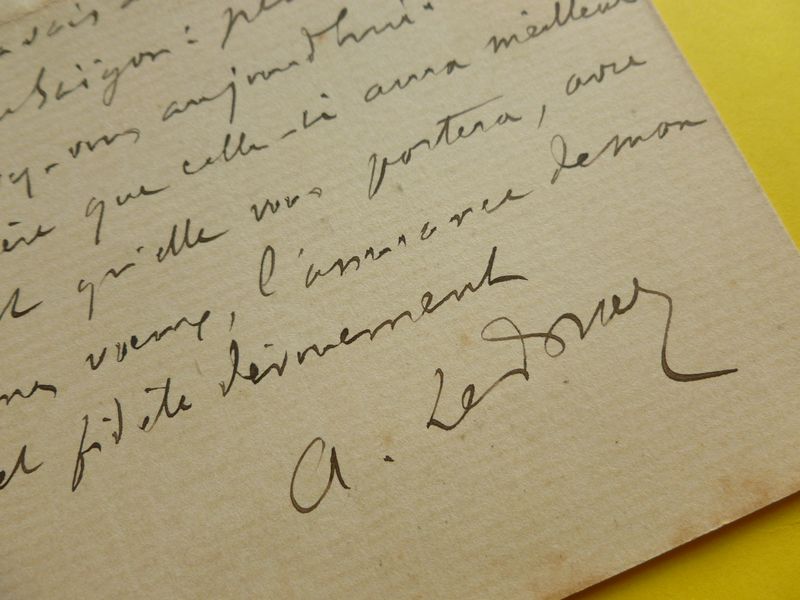 Saïgon: 
-vous aujourd'hui.
que celle-ci aura meilleur
qu'elle vous portera, avec
vœux, l'assurance de mon
et fidèle dévouement
A. Ledoux